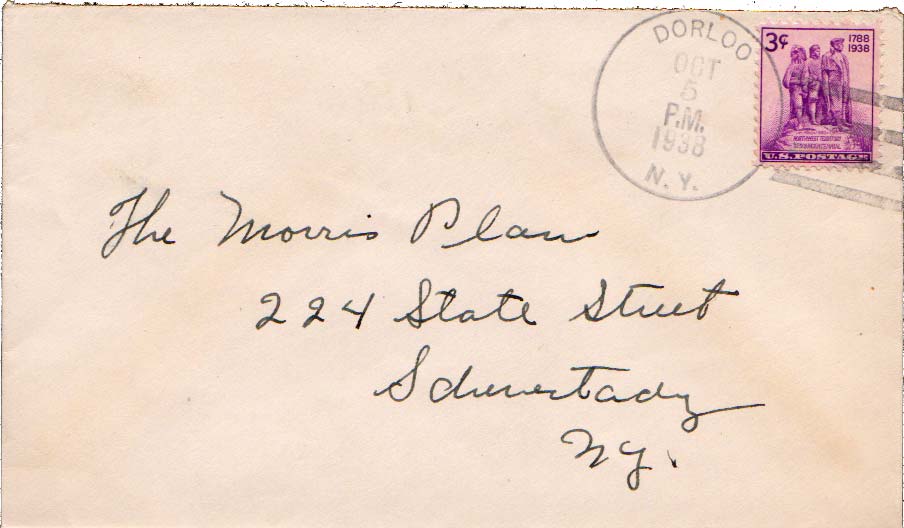 DORLOO
OCT
5
P.M.
1938
N. Y.
3¢
1788
1938
NORTHWEST TERRITORY
SESQUICENTENNIAL
U.S. POSTAGE
The Morris Plan
224 State Street
Schenectady
N.Y.